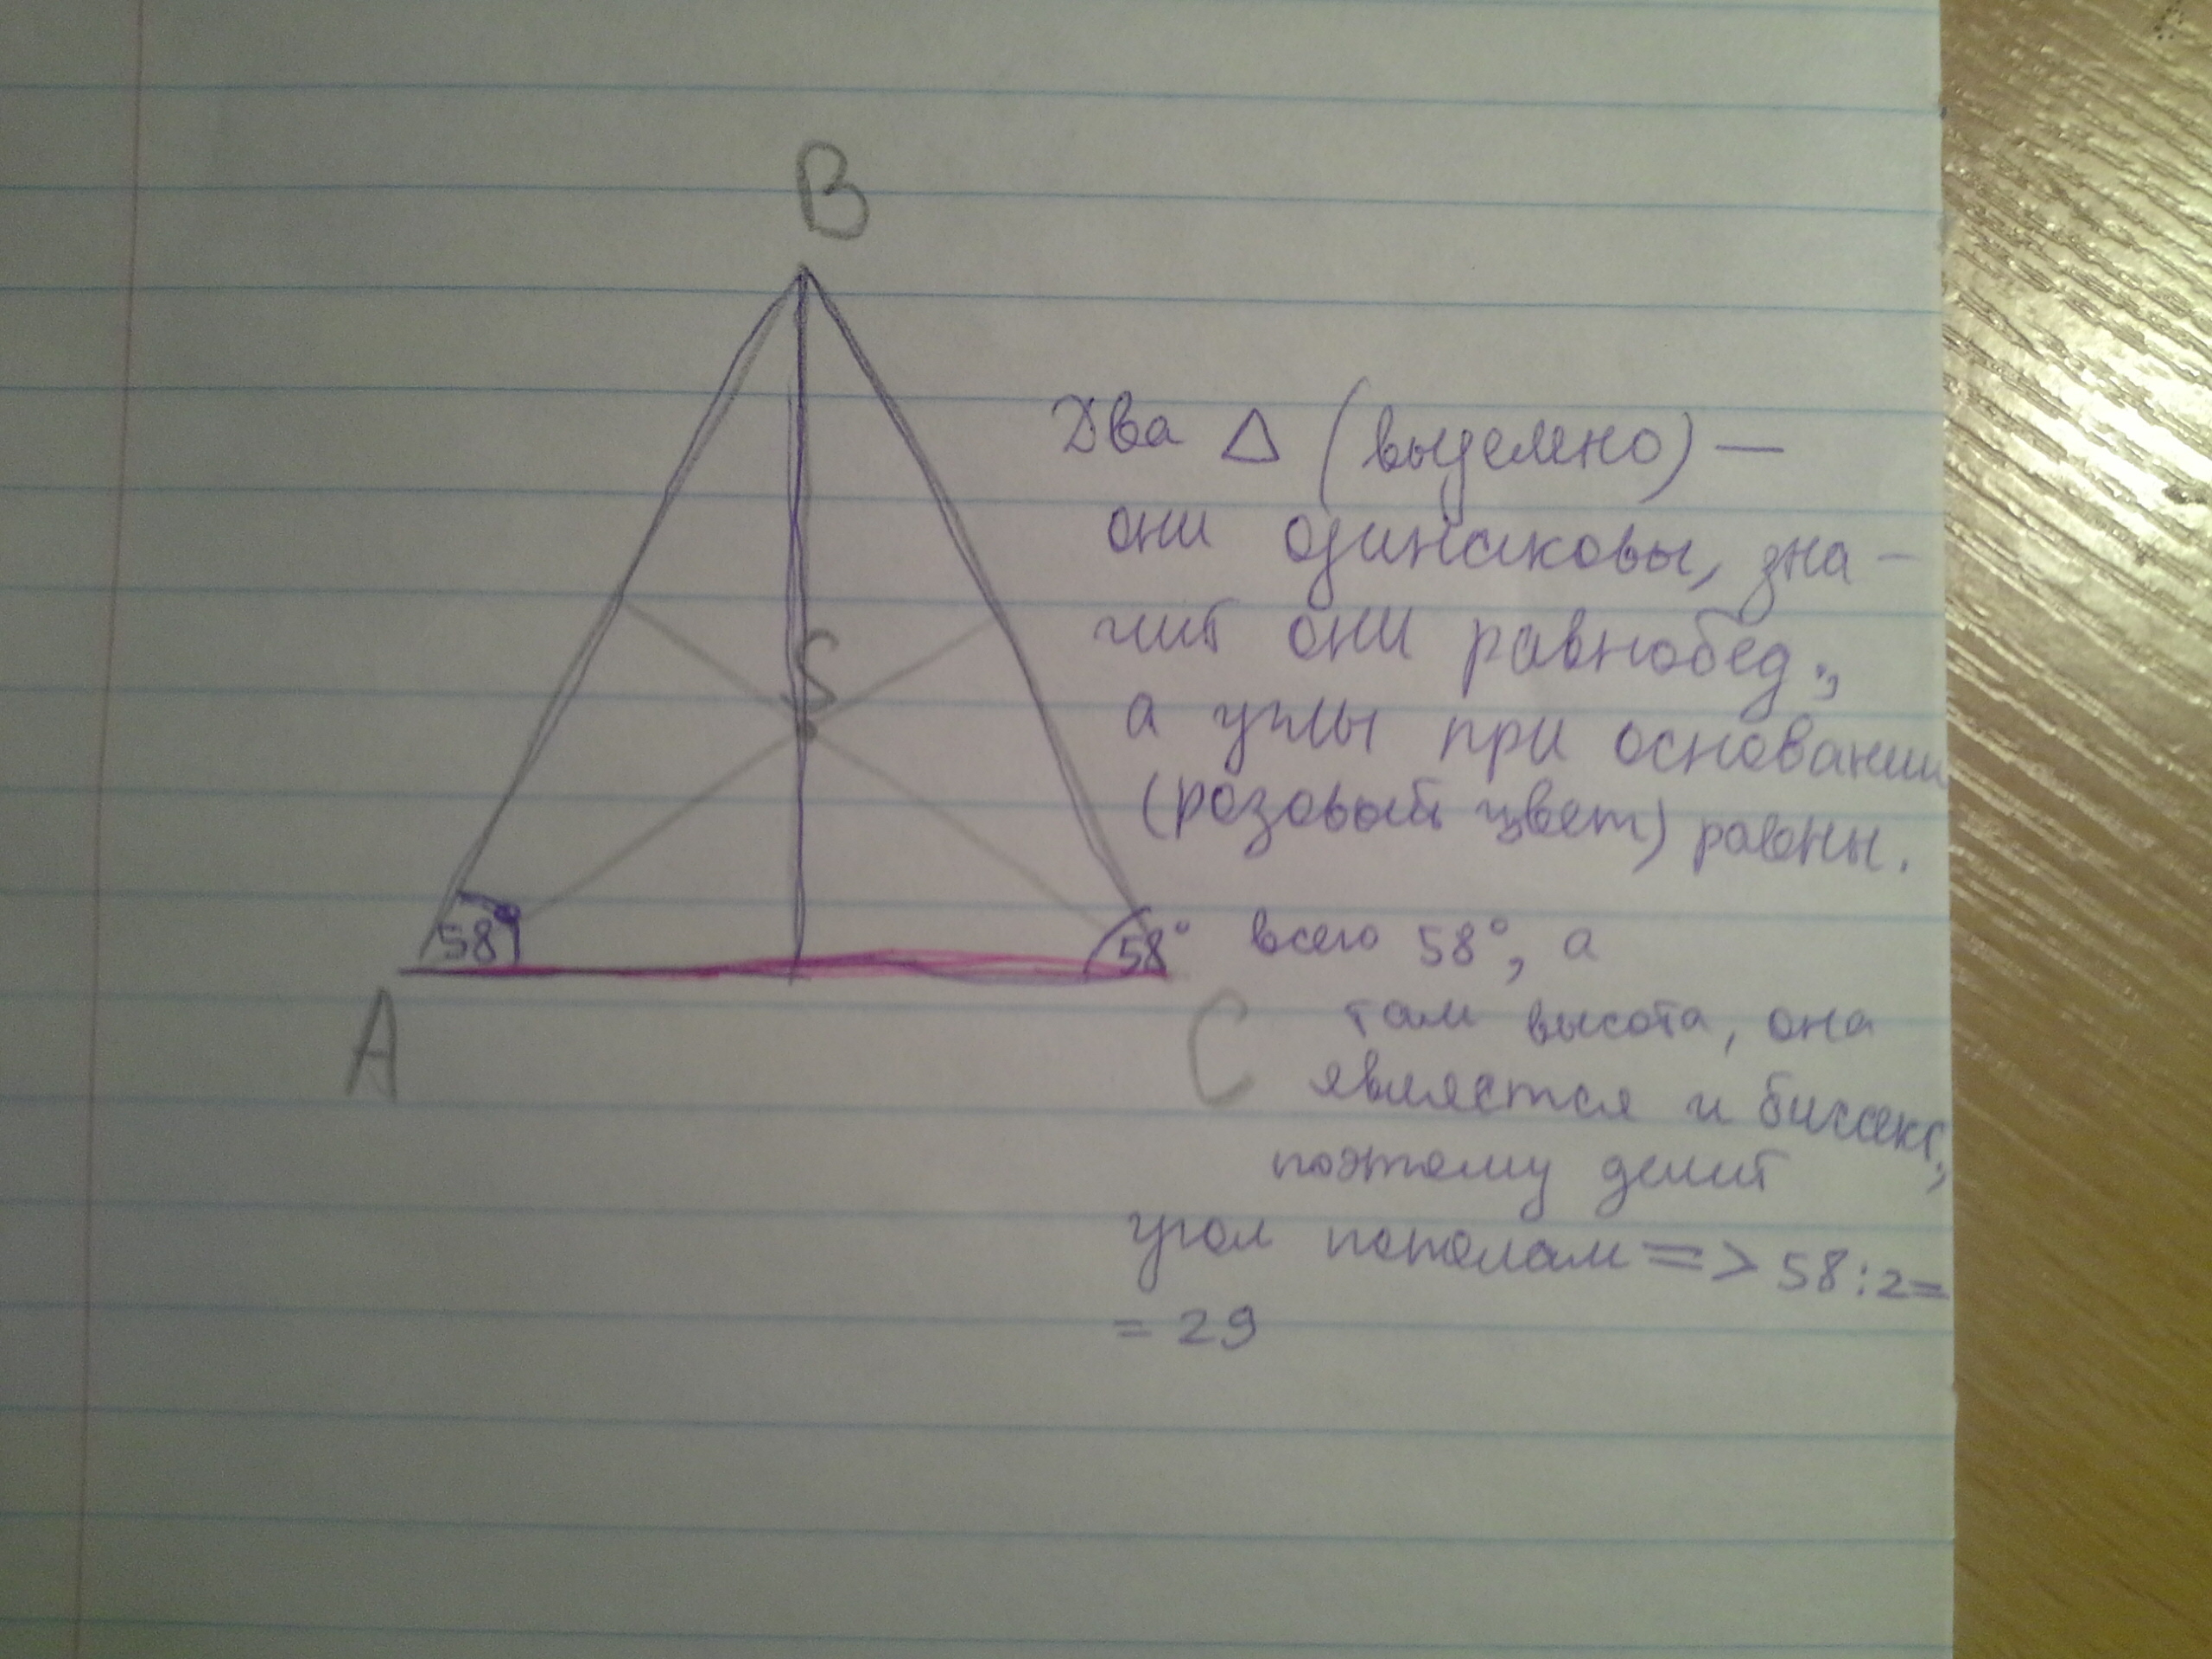 B
Два △ (выделено) —
они одинаковы, зна-
чит они равнобед.,
S
а углы при основании
(розовый цвет) равны.
58°
58° всего 58°, а
A
C
там высота, она
является и биссект.,
поэтому делит
угол пополам => 58:2=
= 29